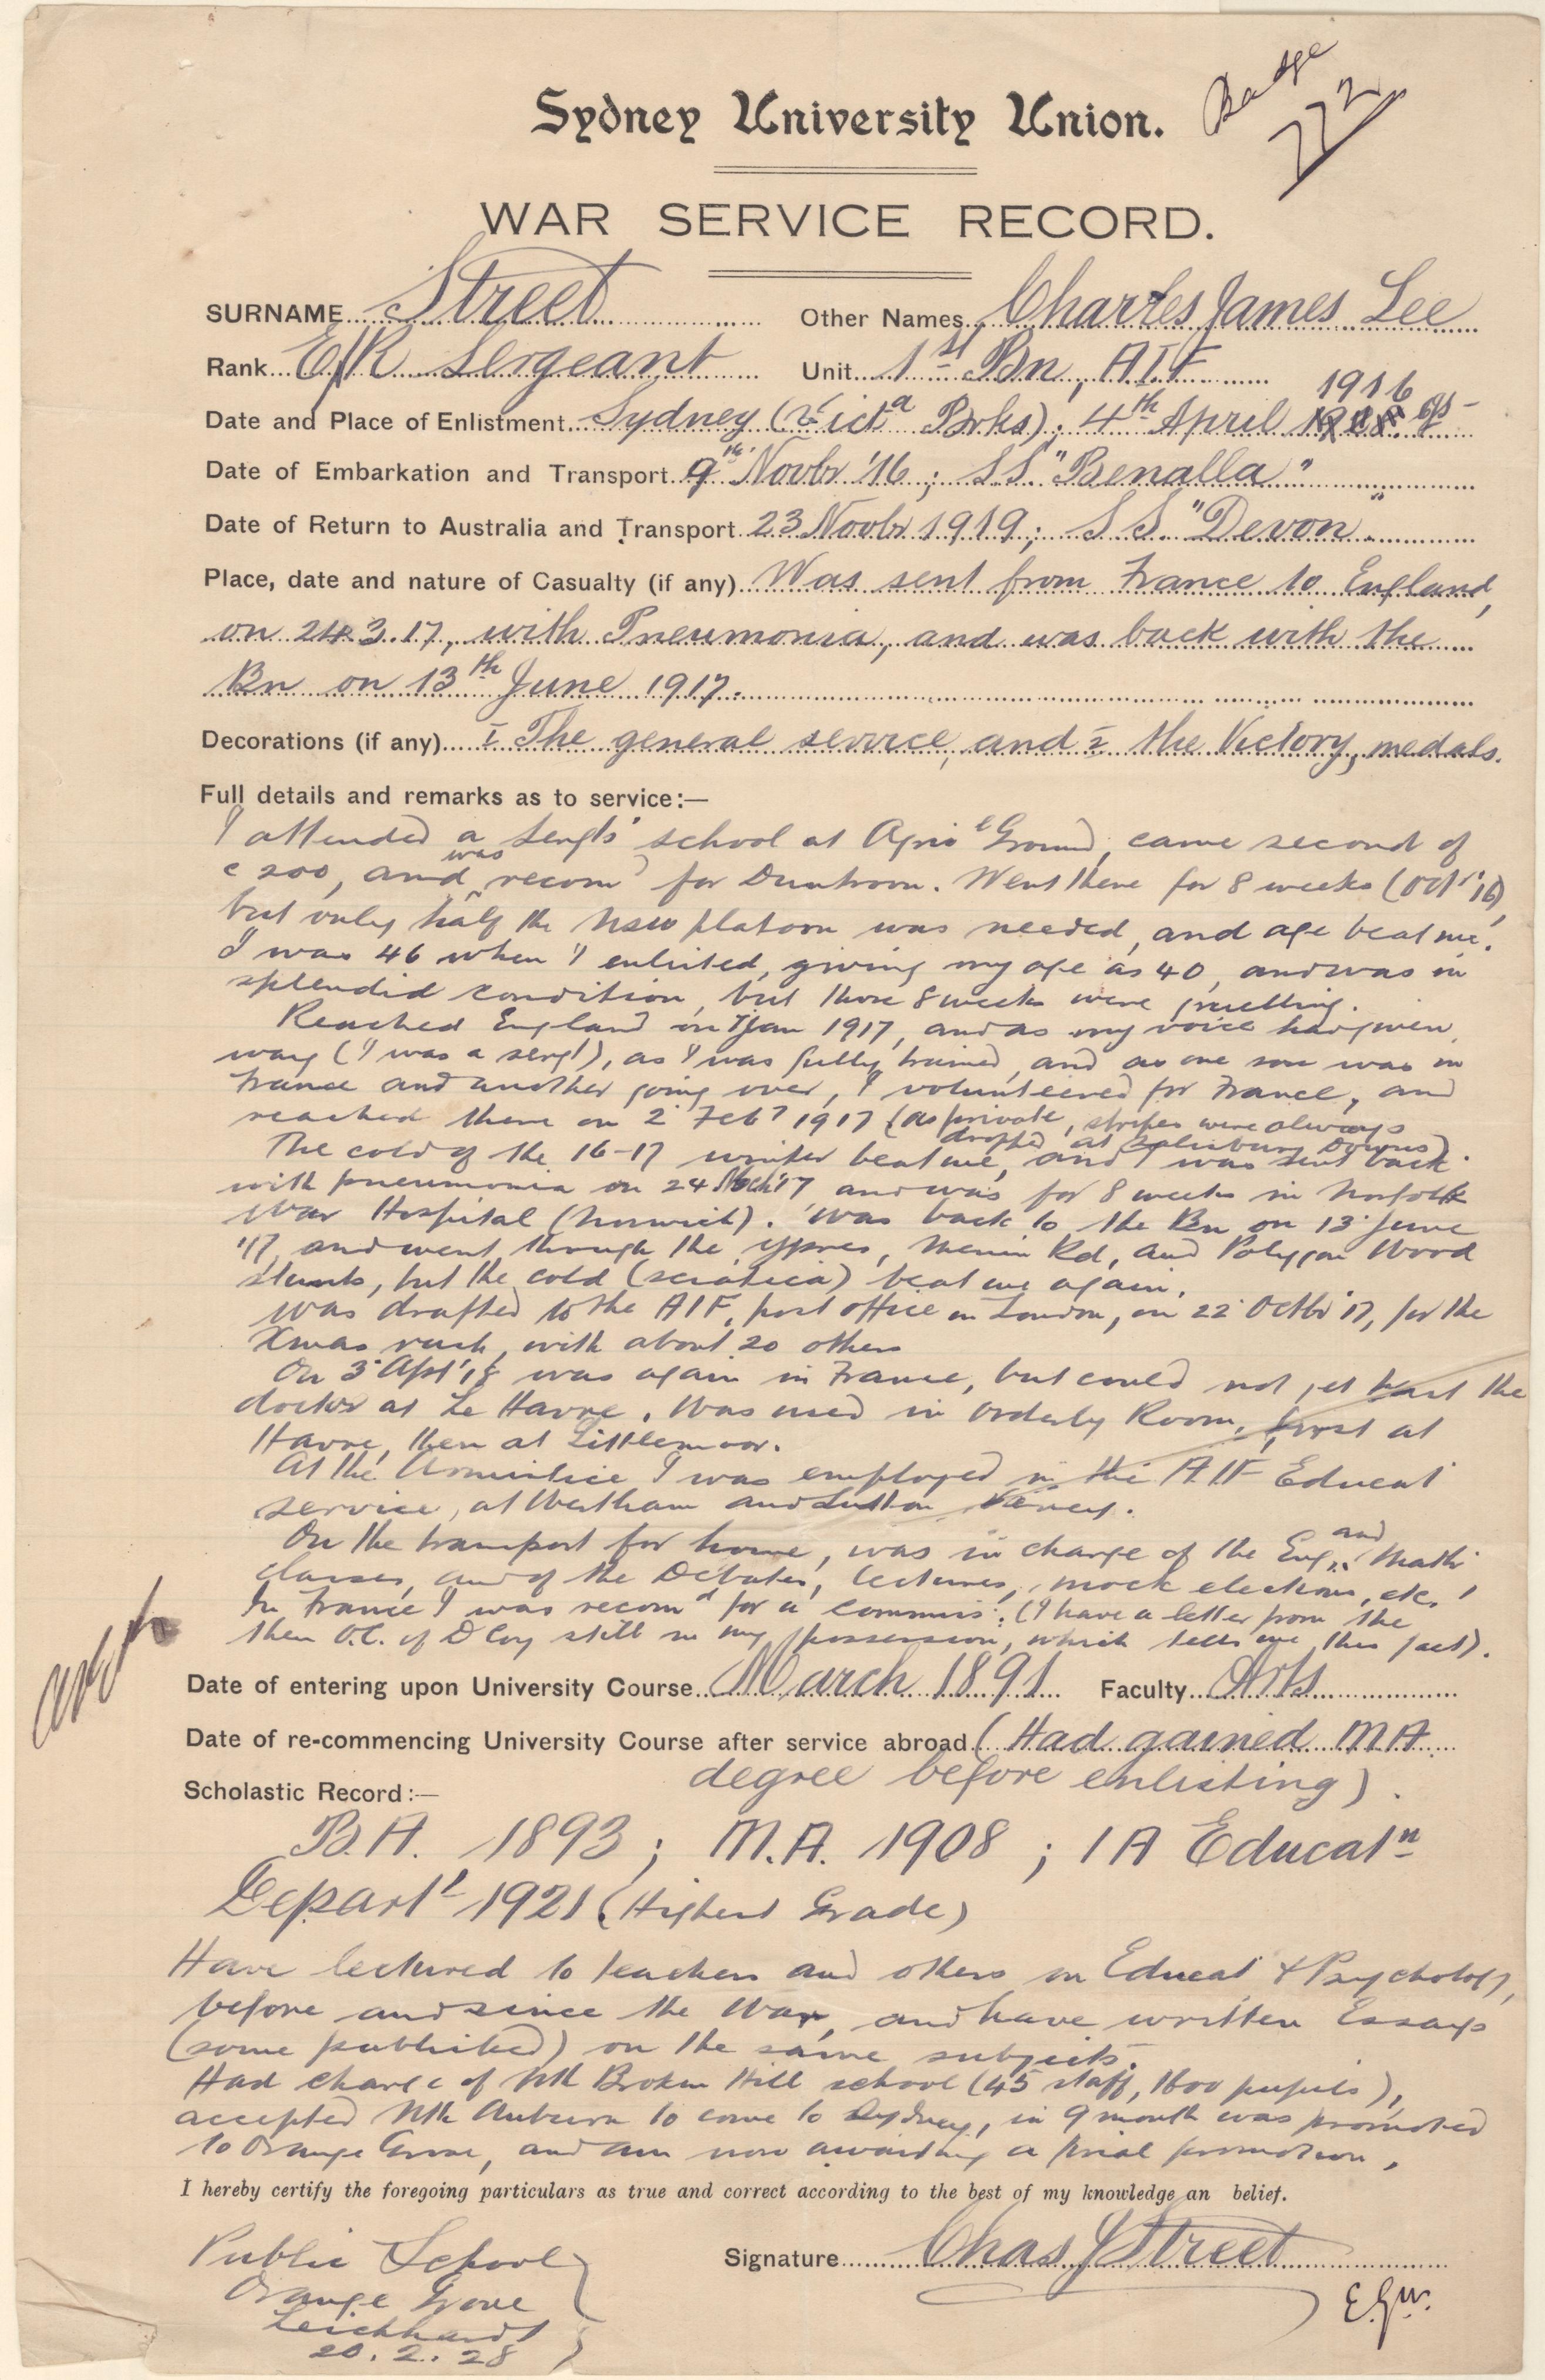 Badge
772
Sydney University Union.
WAR SERVICE RECORD.
SURNAME Street Other Names Charles James Lee
Rank E/R Sergeant Unit 1st Bn, AIF
1916
Date and Place of Enlistment Sydney (Vict.a Brks); 4th April
Date of Embarkation and Transport 9th Novbr '16; S.S. "Benalla"
Date of Return to Australia and Transport 23 Novbr 1919; S.S. "Devon"
Place, date and nature of Casualty (if any) Was sent from France to England,
on 24.3.17, with Pneumonia, and was back with the
Bn on 13th June 1917.
Decorations (if any) 1 The general service, and 2 the Victory, medals.
Full details and remarks as to service:—
I attended a Sergts' school at Agric'l Ground, came second of
c 200, and was recom'd for Duntroon. Went there for 8 weeks (Oct '16),
but only half the NSW platoon was needed, and age beat me.
I was 46 when I enlisted, giving my age as 40, and was in
splendid condition, but those 8 weeks were gruelling.
Reached England in Jan 1917, and as my voice had given
way (I was a sergt), as I was fully trained, and as one son was in
France and another going over, I volunteered for France, and
reached there on 2 Feby 1917 (as private, stripes were always
dropped at Salisbury Downs).
The cold of the 16-17 winter beat me, and I was sent back
with pneumonia on 24 Mch '17 and was for 8 weeks in Norfolk
War Hospital (Norwich). Was back to the Bn on 13 June
'17, and went through the Ypres, Menin Rd, and Polygon Wood
stunts, but the cold (sciatica) beat me again.
Was drafted to the AIF, post office in London, on 22 Octbr '17, for the
Xmas rush, with about 20 others
On 3 Apl '18 was again in France, but could not get past the
doctor at Le Havre. Was used in Orderly Room, first at
Havre, then at Littlemoor.
At the Armistice I was employed in the A.I.F Educat
service, at Westham and Sutton Veney.
On the transport for home, was in charge of the Eng. and Math
classes, and of the Debates, lectures, mock elections, etc.
In France I was recomd for a commis:. (I have a letter from the
then O.C. of D Coy still in my possession, which tells me this fact).
Date of entering upon University Course March 1891 Faculty Arts
Date of re-commencing University Course after service abroad (Had gained MA
degree before enlisting).
Scholastic Record:—
B.A. 1893; M.A. 1908; 1A Educatn
Depart't 1921 (Highest Grade)
Have lectured to teachers and others on Educat & Psychology,
before and since the War, and have written Essays
(some published) on the same subjects.
Had charge of Nth Broken Hill school (45 staff, 1600 pupils),
accepted Nth Auburn to come to Sydney, in 9 month was promoted
to Orange Grove, and am now awaiting a final promotion.
I hereby certify the foregoing particulars as true and correct according to the best of my knowledge an belief.
Signature Chas J Street
Public School
Orange Grove
Leichhardt
20.2.28
E.G.W.